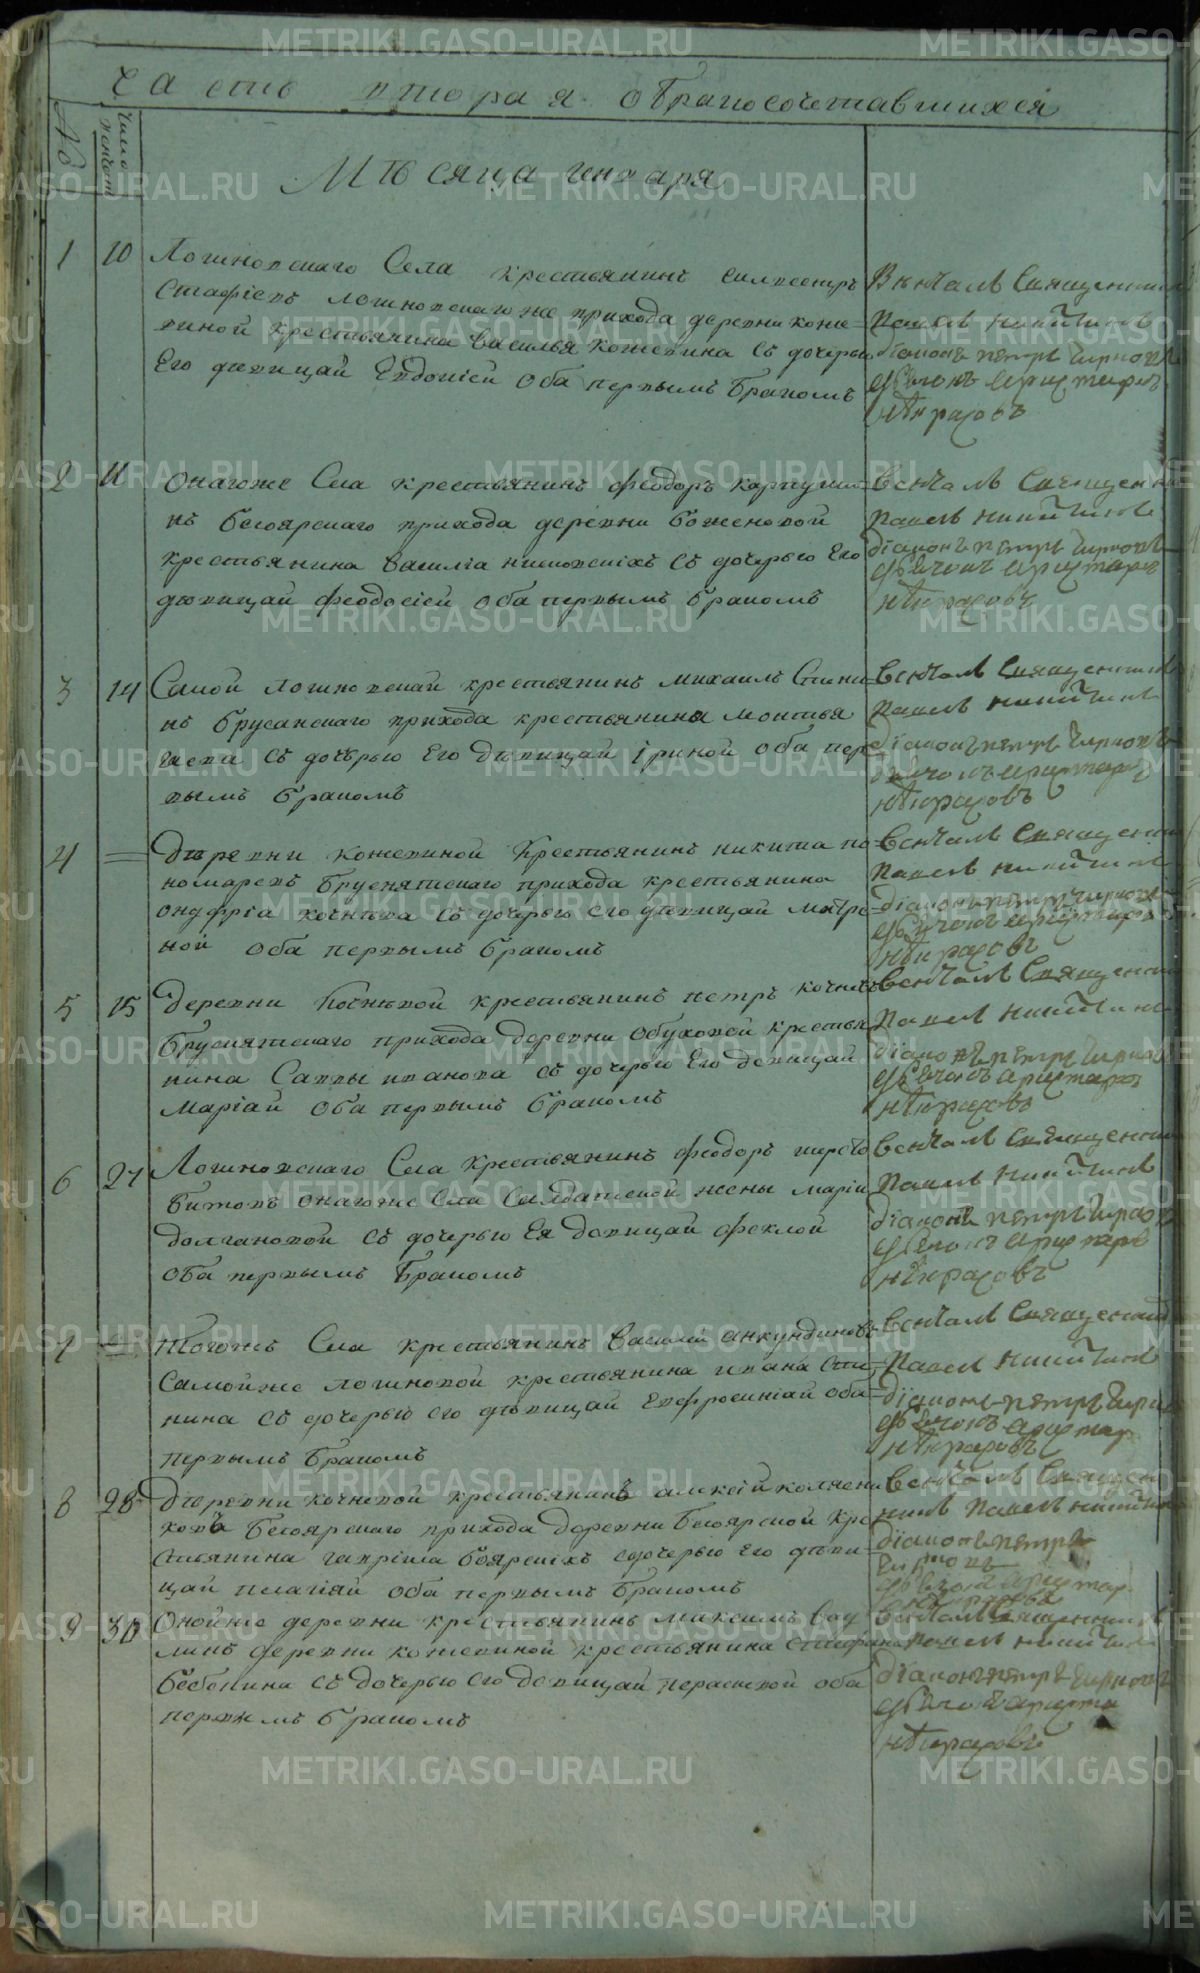 Часть вторая о бракосочетавшихся
№
число
Мѣсяца генваря
1
10
Логиновскаго Села крестьянинъ Силвестръ
Стафіевъ логиновскаго же прихода деревни коже=
виной крестьянина василья кожевина съ дочерью
Его дѣвицай Евдокіей оба первымъ бракомъ
Вѣнчалъ Священникъ
Павелъ Никитинъ
діаконъ петръ
дьячокъ аристархъ
некрасовъ
2
11
Онагоже Села крестьянинъ феодоръ
нъ Белоярскаго прихода деревни Боженовой
крестьянина василіа съ дочерью Его
дѣвицай феодосіей оба первымъ бракомъ
Венчалъ Священникъ
Павелъ Никитинъ
діаконъ петръ
дьячокъ аристархъ
некрасовъ
3
14
Самой логиновскай крестьянинъ михаилъ
нъ Брусанскаго прихода крестьянина
съ дочерью Его дѣвицай іриной оба пер=
вымъ бракомъ
Венчалъ Священникъ
Павелъ Никитинъ
діаконъ петръ
дьячокъ аристархъ
некрасовъ
4
=
Деревни кожевиной Крестьянинъ никита по=
номаревъ Бруснятскаго прихода крестьянина
онуфріа кочнева съ дочерью его дѣвицай матре=
ной оба первымъ бракомъ
Венчалъ Священникъ
Павелъ Никитинъ
діаконъ петръ
дьячокъ аристархъ
некрасовъ
5
15
Деревни Кочневой крестьянинъ петръ кочневъ
Бруснятскаго прихода деревни обуховой крестья
нина Саввы иванова съ дочерью Его девицай
Маріай оба первымъ бракомъ
Венчалъ Священникъ
Павелъ Никитинъ
діаконъ петръ
дьячокъ аристархъ
некрасовъ
6
27
Логиновскаго Села крестьянинъ феодоръ
битовъ онагоже Села Салдатской жены маріи
долгановой съ дочерью Ея девицай феклой
оба первымъ бракомъ
Венчалъ Священникъ
Павелъ Никитинъ
діаконъ петръ
дьячокъ аристархъ
некрасовъ
7
=
Тогожъ Села крестьянинъ василій анкундиновъ
Самойже логиновой крестьянина ивана
нина съ дочерью его дѣвицай Евфросиніай оба
первымъ бракомъ
Венчалъ Священникъ
Павелъ Никитинъ
діаконъ петръ
дьячокъ аристархъ
некрасовъ
8
28
Деревни кочневой крестьянинъ алексій колясни
ковъ Белоярскаго прихода деревни Белоярской кре
стьянина гавріила Боярскіхъ сдочерью Его дѣви=
цай пелагіяй оба первымъ бракомъ
Венчалъ Священ
никъ Павелъ Никитинъ
діаконъ петръ
дьячокъ аристархъ
некрасовъ
9
30
Онойже деревни крестьянинъ максимъ
линъ деревни кожевиной крестьянина стефана
Бебенина съ дочерью его девицай парасковой оба
первымъ бракомъ
Венчалъ Священникъ
Павелъ Никитинъ
діаконъ петръ
дьячокъ ариста
некрасовъ
METRIKI.GASO-URAL.RU